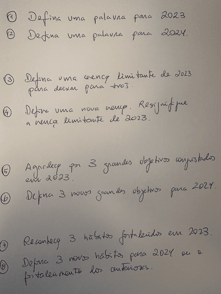 ① Defina uma palavra para 2023
② Defina uma palavra para 2024.
③ Defina uma crença limitante de 2023
para deixar para trás
④ Defina uma nova crença. Ressignifique
a crença limitante de 2023.
⑤ Agradeça por 3 grandes objetivos conquistados
em 2023.
⑥ Defina 3 novos grandes objetivos para 2024
⑦ Reconheça 3 hábitos fortalecidos em 2023
⑧ Defina 3 novos hábitos para 2024 ou o
fortalecimento dos anteriores.